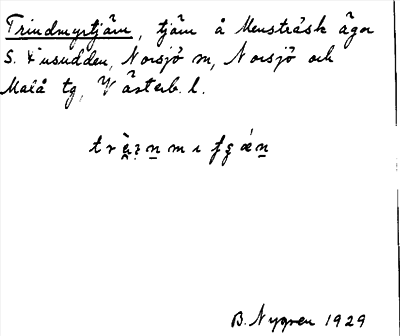 Trindmyrtjärn, tjärn å Mensträsk ägor
S. Ljusudden, Norsjö sn, Norsjö och
Malå tg, Västerb. l.
B. Nygren 1929